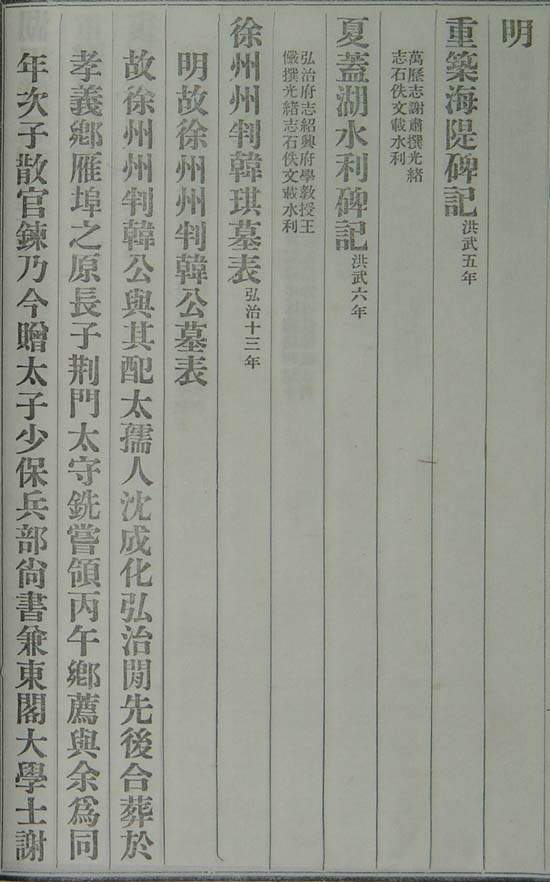 明
重築海隄碑記洪武五年
萬歷志謝肅撰光緒
志石佚文載水利
夏蓋湖水利碑記洪武六年
弘治府志紹興府學教授王
儼撰光緒志石佚文載水利
徐州州判韓琪墓表弘治十三年
明故徐州州判韓公墓表
故徐州州判韓公與其配太孺人沈成化弘治閒先後合葬於
孝義鄉雁埠之原長子荆門太守銑嘗領丙午鄉薦與余爲同
年次子散官鍊乃今贈太子少保兵部尙書兼東閣大學士謝